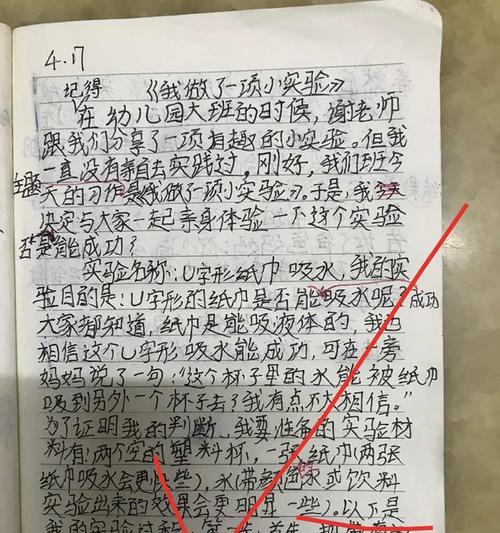 4.17
记得 《我做了一项小实验》
在幼儿园大班的时候,谢老师
跟我们分享了一项有趣的小实验。但我
一直没有亲自去实践过,刚好,我们班今
天的习作主题是《我做了项小实验》。于是,我
决定与大家一起亲身体验一下这个实验
是否能成功?
实验名称:U字形纸巾吸水,我的实
验目的是:U字形的纸巾是否能成功吸水呢?
大家都知道,纸巾是能吸液体的,我也
相信这个U字形吸水能成功,可在一旁
妈妈说了一句:“这个杯子里的水能被纸巾
吸到另外一个杯子去?我有点不大相信。”
为了证明我的判断,我要准备的实验材
料有:两个空的塑料杯,一张纸巾(两张
纸巾吸水会更快些),水(带颜色的水或饮料
实验出来的效果会更明显一些)。以下是
我的实验过程:第一步:首先,把